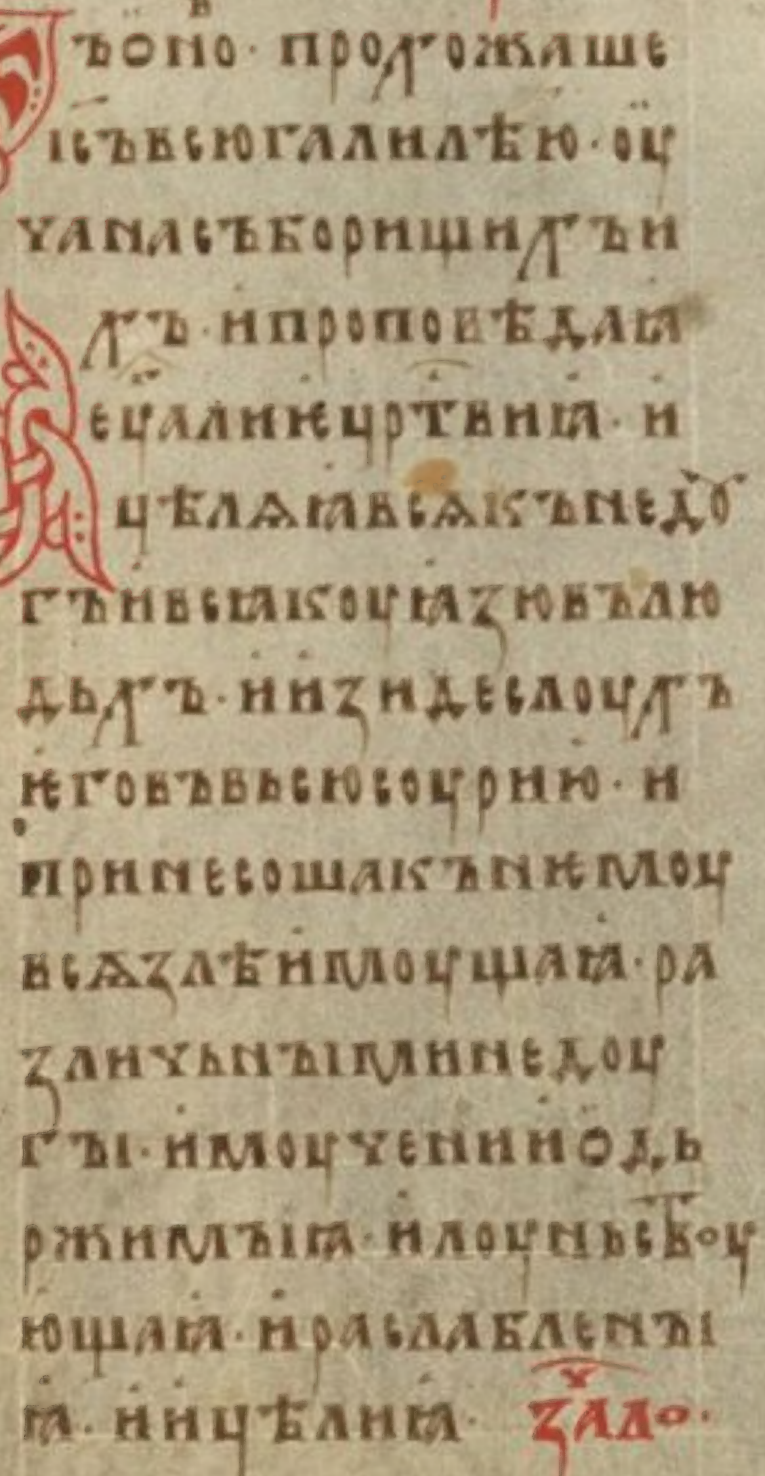 Въ ѻ҆но · прохожаше
і҃с въ всю галилѣю · оу
чѧ на съборищихъ и
хъ · и҆ проповѣдаꙗ
еу҃алиѥ црⷭ҇твиꙗ · и
цѣлѧꙗ всѧкъ недѹ
гъ и҆ всꙗкоу ꙗзю въ лю
дьхъ · и҆ и҆зиде слоухъ
ѥго въ вьсю соурию · и
принесоша къ нѥмоу
всѧ злѣ и҆моущаꙗ · ра
зличьными недоу
гы · и҆ моучении ѻ҆дь
ржимыꙗ · и҆ лоуньсвоу
ющаꙗ · и҆ раслаблены
ꙗ · и҆ и҆цѣли ꙗ · за҃ⷱало ·